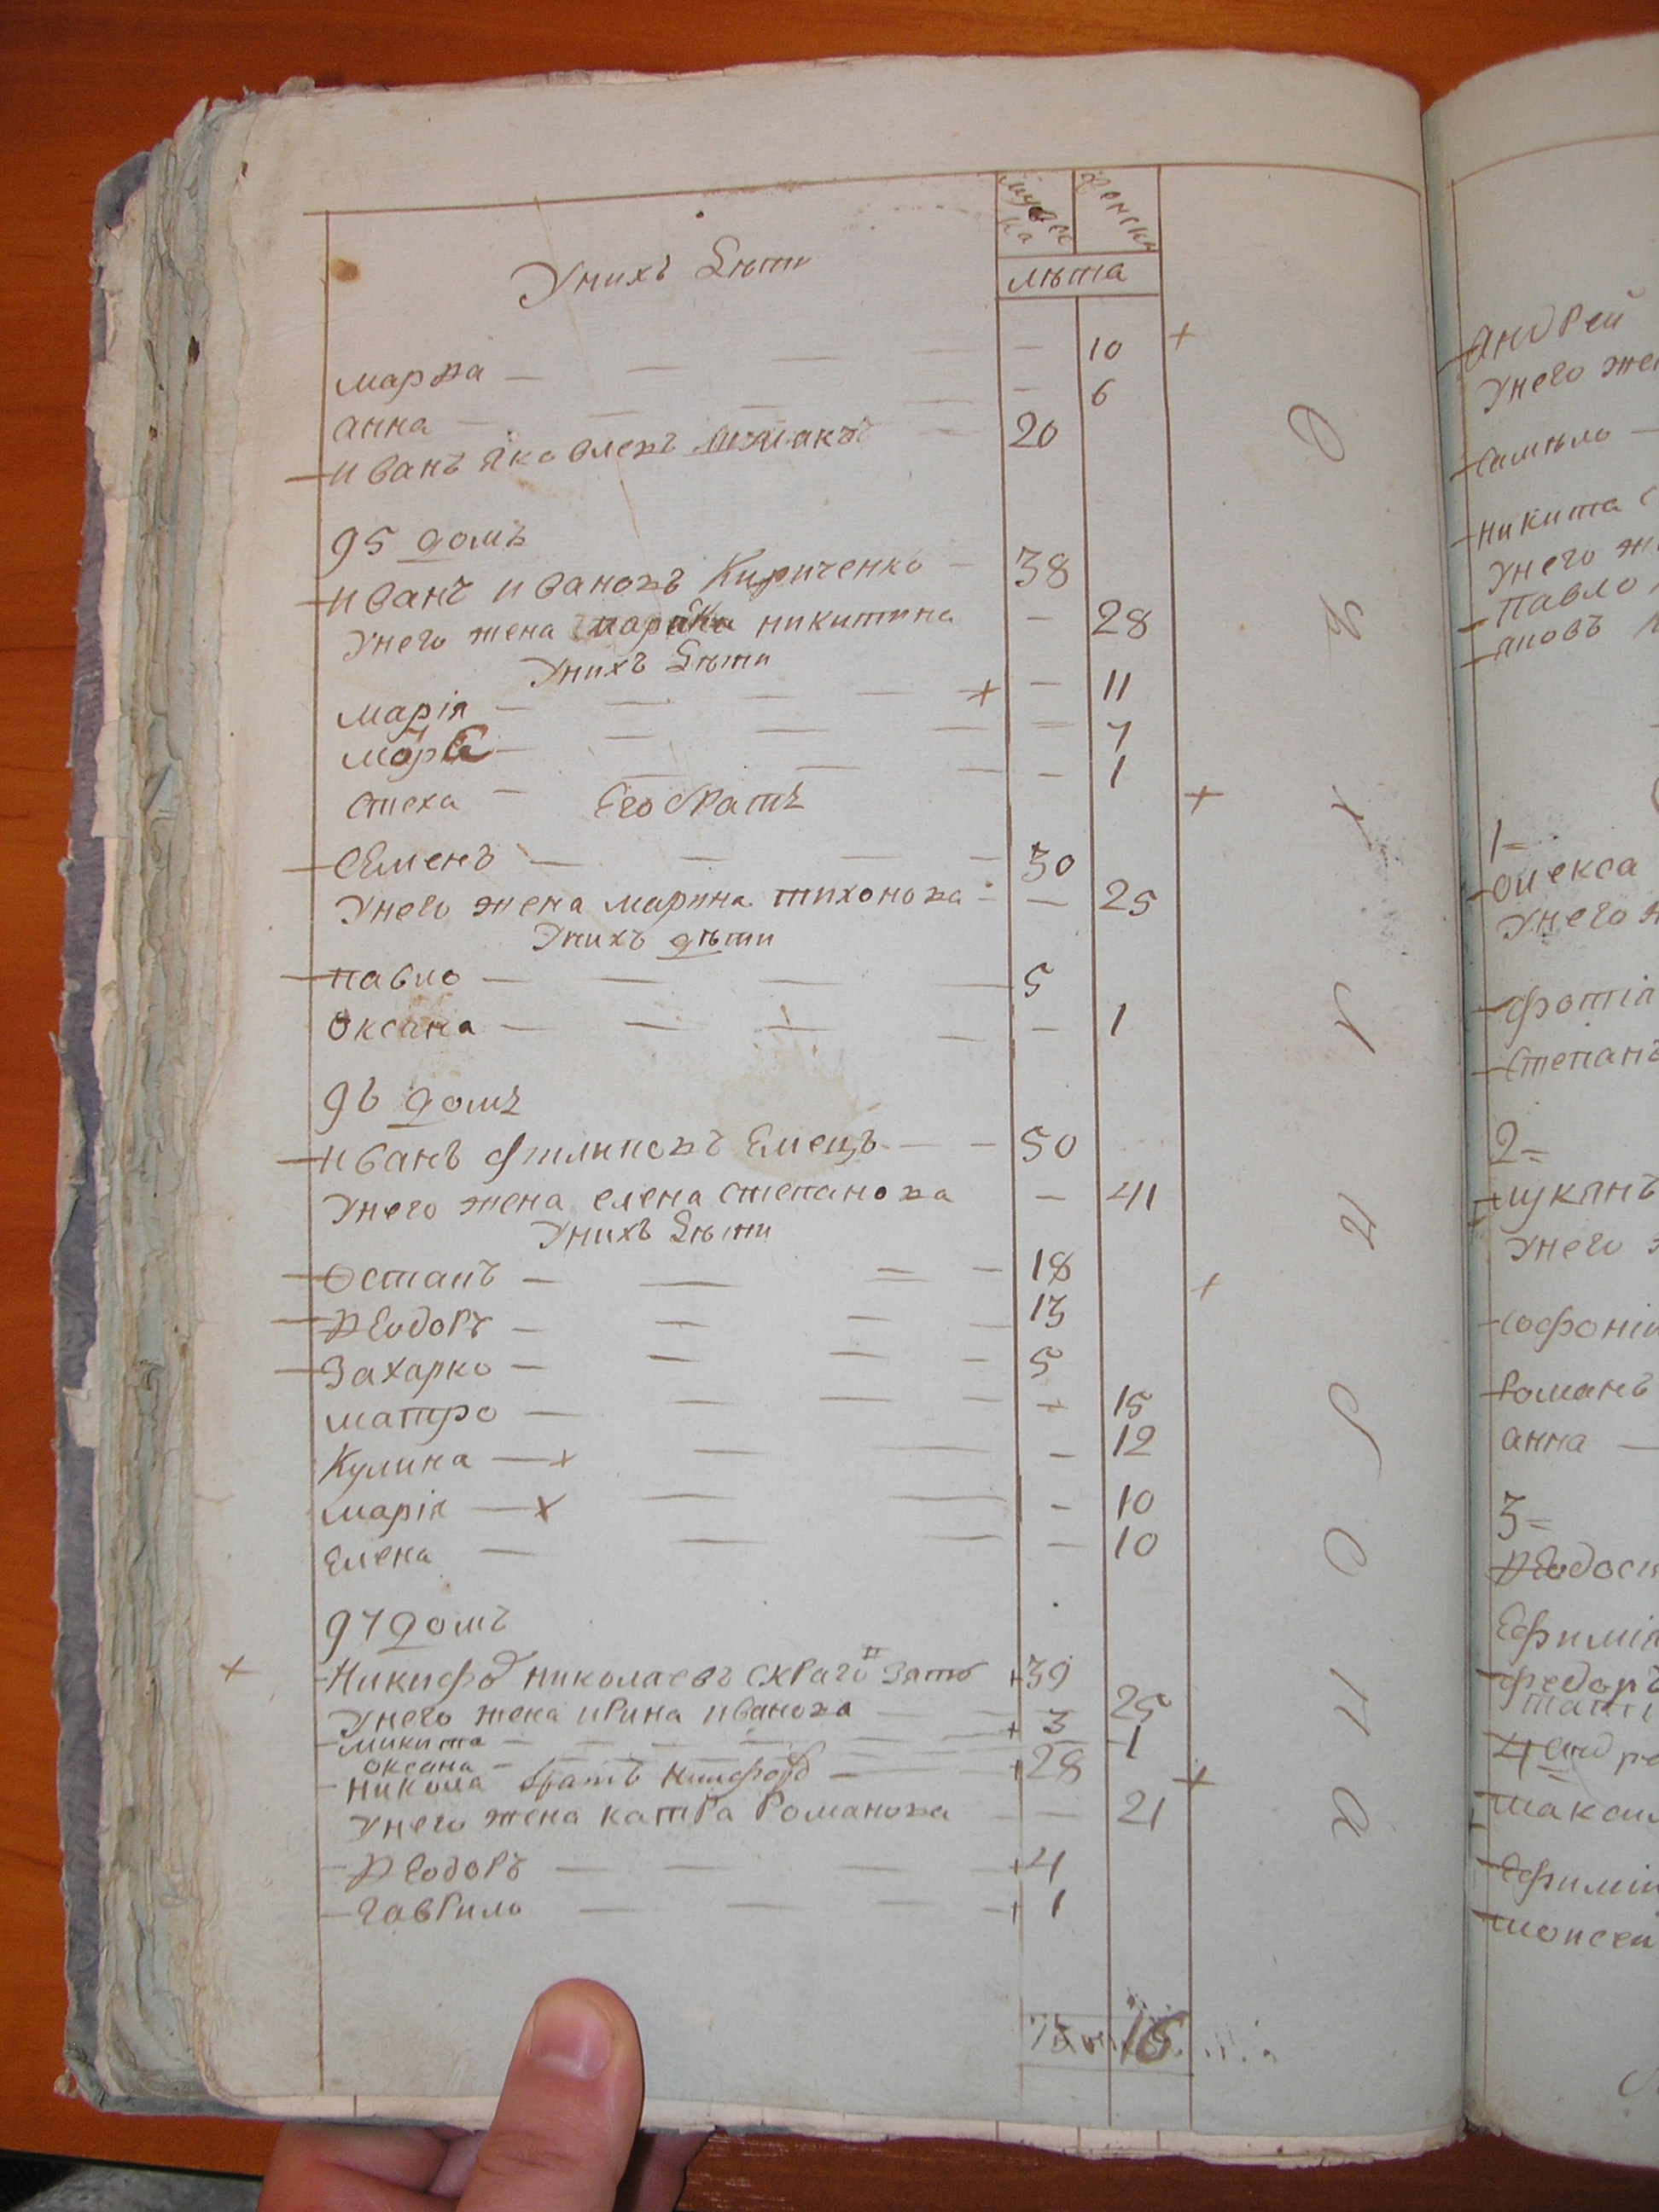 мужеска женска
лѣта
У нихъ дѣти
марѳа — 10 +
анна — 6
Иванъ Яковлевъ 20
95 домъ
Иванъ Ивановъ Кириченко — 38
У него жена никитина — 28
У нихъ дѣти
Марія — + — 11
— 7
Стеха — 1
Его братъ +
Семенъ — 30
У него жена марина тихонова — 25
У нихъ дѣти
Павло — 5
Оксана — 1
96 домъ
Иванъ Филиповъ Емецъ — 50
У него жена елена степанова — 41
У нихъ дѣти
Остапъ — 18 +
Ѳеодоръ — 13
Захарко — 5
матро — 15
Кулина — + — 12
Марія — + — 10
елена — 10
97 домъ
+ Никифо николаевъ зять + 39
У него жена ирина иванова — 25
микита — + 3
оксана — 1
никола братъ — + 28 +
У него жена катра Романова — 21
Ѳеодоръ — + 4
Гаврило — + 1
16
Андрей
У него
Самѣло —
никита
У него
Павло
яковъ
1=
Олекса
У него
Фотія
Степанъ
2=
лукянъ
У него
софоній
Романъ
анна —
3=
Ѳеодос
Ефимія
Федоръ
4
Максим
Ефимія
Моисеи